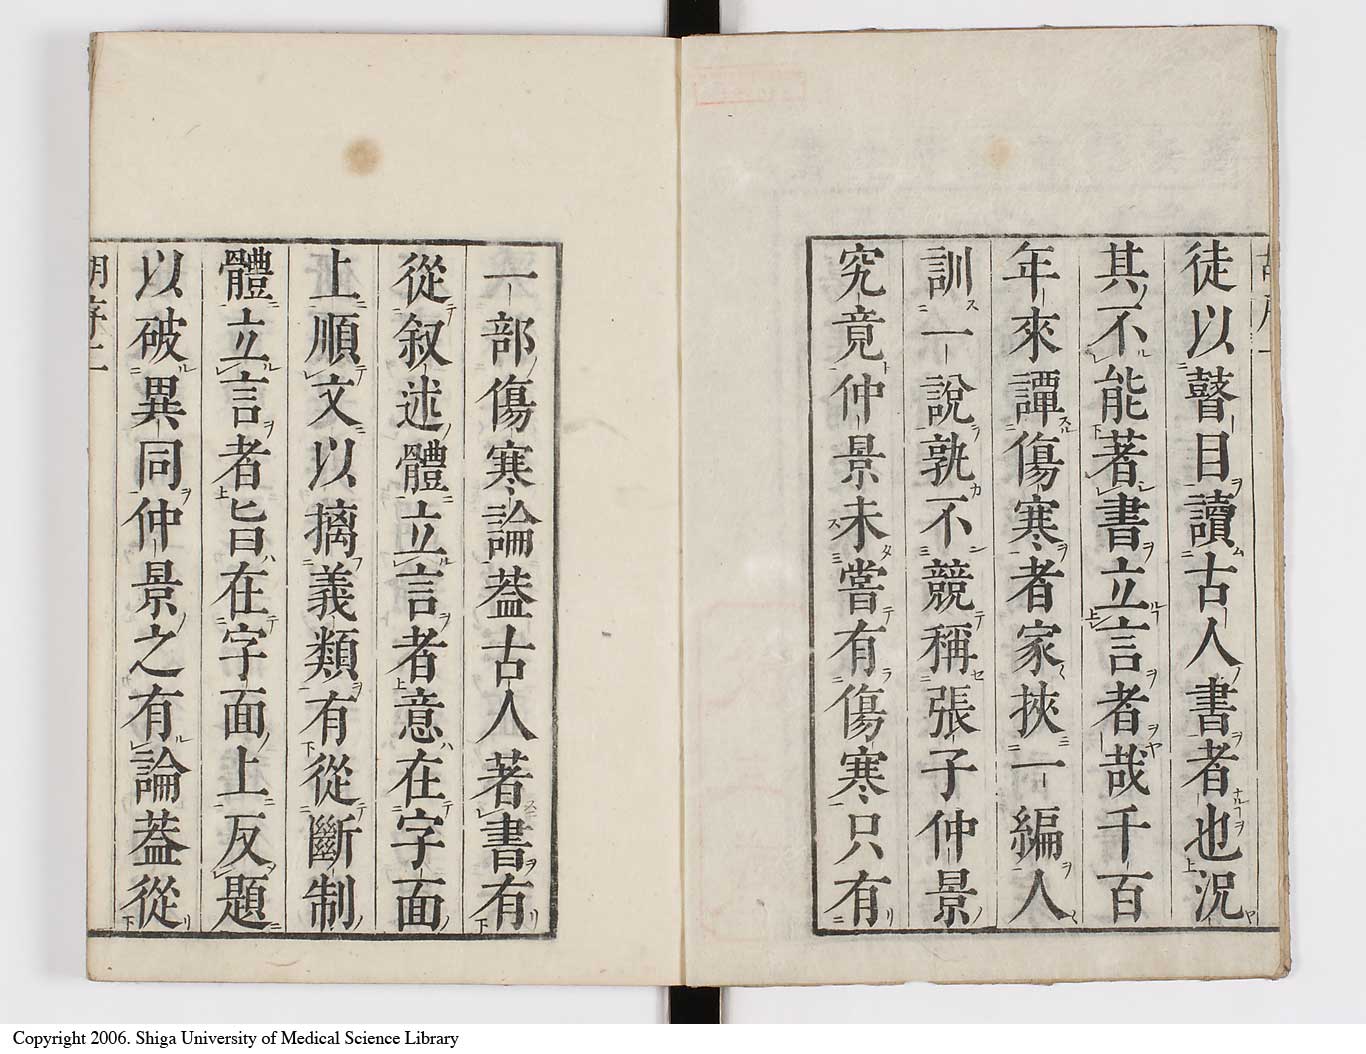 徒以瞽目讀古人書者也況
其不能著書立言者哉千百
年來譚傷寒者家挾一編人
訓一說孰不競稱張子仲景
究竟仲景未嘗有傷寒只有
一部傷寒論葢古人著書有
從叙述體立言者意在字面
上順文以摛義類有從斷制
體立言者旨在字面上反題
以破異同仲景之有論葢從
Copyright 2006. Shiga University of Medical Science Library